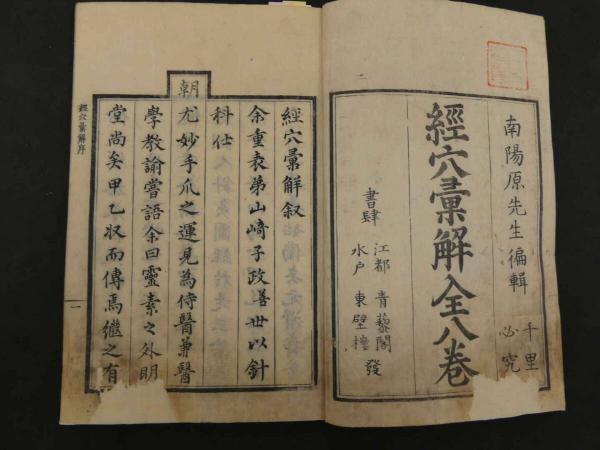 南陽原先生編輯
千里必究
經穴彙解全八卷
書肆
江都 青藜閣
水戶 東壁樓
發
二
經穴彙解叙
余重表弟山﨑子政善世以針
科仕
朝
尤妙手爪之運見為侍醫兼醫
學教諭嘗語余曰靈素之外明
堂尚矣甲乙収而傳焉繼之有
經穴彙解序
一